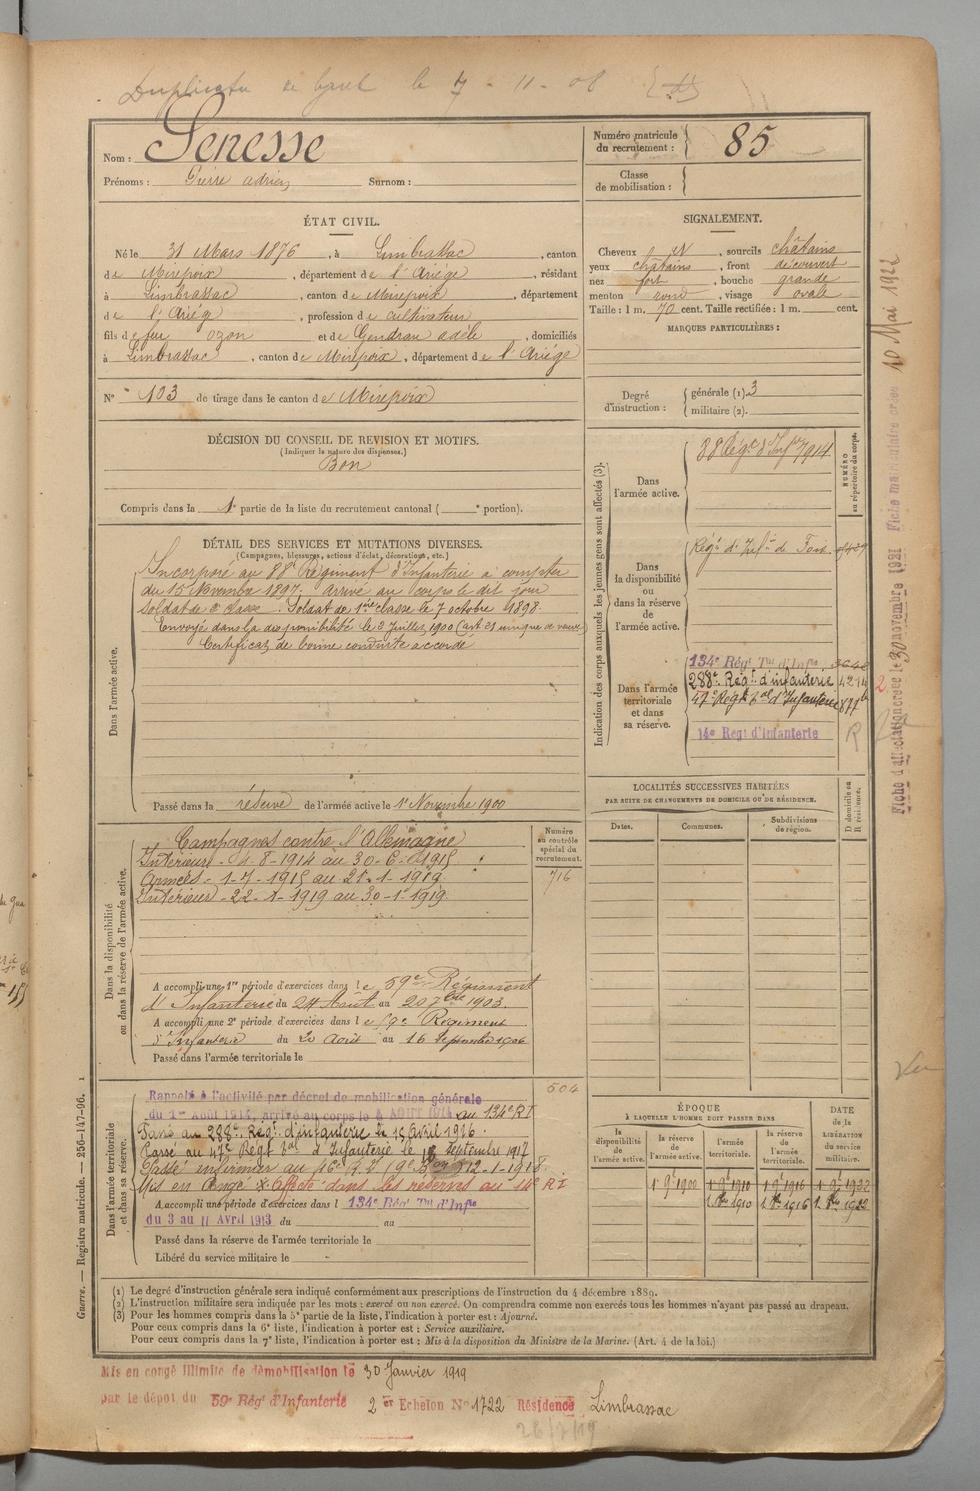 Duplicata de livret le 7 - 11 - 08
Nom : Senesse
Prénoms : Pierre adrien Surnom :
Numéro matricule du recrutement : 85
Classe de mobilisation :
ÉTAT CIVIL.
Né le 31 Mars 1876, à Limbrassac, canton
de Mirepoix, département de l'Ariège, résidant
à Limbrassac, canton de Mirepoix, département
de l'Ariège, profession de cultivateur
fils de feu Ozon et de Gendran adèle, domiciliés
à Limbrassac, canton de Mirepoix, département de l'Ariège
N° 103 de tirage dans le canton de Mirepoix
SIGNALEMENT.
Cheveux N, sourcils châtains
yeux châtains, front découvert
nez fort, bouche grande
menton rond, visage ovale
Taille : 1 m. 70 cent. Taille rectifiée : 1 m. cent.
MARQUES PARTICULIÈRES :
Degré d'instruction : générale (1). 3
militaire (2).
DÉCISION DU CONSEIL DE REVISION ET MOTIFS.
(Indiquer la nature des dispenses.)
Bon
Compris dans la 1e partie de la liste du recrutement cantonal ( e portion).
DÉTAIL DES SERVICES ET MUTATIONS DIVERSES.
(Campagnes, blessures, actions d'éclat, décorations, etc.)
Dans l'armée active.
Incorporé au 88e Régiment d'Infanterie à compter
du 15 Novembre 1897. Arrivé au corps le dit jour
Soldat de 2e classe. Soldat de 1ère classe le 7 octobre 1898.
Envoyé dans la disponibilité le 2 Juillet 1900 (art 21 unique de veuve)
Certificat de bonne conduite accordé
Passé dans la réserve de l'armée active le 1er Novembre 1900
Indication des corps auxquels les jeunes gens sont affectés (3).
NUMÉRO au répertoire du corps.
Dans l'armée active.
88 Rég.t d'Inf.ie 7914
Dans la disponibilité ou dans la réserve de l'armée active.
Reg.t d'Inf.ie de Foix
Dans l'armée territoriale et dans sa réserve.
134e Régt Tal d'Infie 3648
288e Régt d'infanterie 4214
47e Régt Tal d'Infanterie 877
14e Regt d'Infanterie
R
LOCALITÉS SUCCESSIVES HABITÉES
PAR SUITE DE CHANGEMENTS DE DOMICILE OU DE RÉSIDENCE.
D domicile ou R résidence.
Dates. Communes. Subdivisions de région.
Dans la disponibilité ou dans la réserve de l'armée active.
Numéro au contrôle spécial du recrutement.
716
Campagnes contre l'Allemagne
Intérieur - 4-8-1914 au 30-6-1915
Armées - 1-7-1915 au 21-1-1919
Intérieur - 22-1-1919 au 30-1-1919
A accompli une 1re période d'exercices dans le 59e Régiment
d'Infanterie du 24 Août au 20 7bre 1903.
A accompli une 2e période d'exercices dans le 59e Régiment
d'Infanterie du 20 Août au 16 Septembre 1906
Passé dans l'armée territoriale le
Dans l'armée territoriale et dans sa réserve.
504
Rappelé à l'activité par décret de mobilisation générale
du 1er Août 1914, arrivé au corps le 4 AOUT 1914 au 134e RI
Passé au 288e Régt d'infanterie le 15 avril 1916.
Passé au 47e Régt Tal d'Infanterie le 18 Septembre 1917
Passé infirmier au 16e 12-1-1918
Mis en Congé Affecté dans les réserves au 14e RI
A accompli une période d'exercices dans l 134e Rég Tal d'Infie
du 3 au 11 Avril 1913 du au
Passé dans la réserve de l'armée territoriale le
Libéré du service militaire le
ÉPOQUE
À LAQUELLE L'HOMME DOIT PASSER DANS
DATE de la LIBÉRATION du service militaire.
la disponibilité de l'armée active. la réserve de l'armée active. l'armée territoriale. la réserve de l'armée territoriale.
1 9 1900 1 9 1910 1 9 1916 1 9 1922
1 8bre 1910 1 8bre 1916 1 8bre 1922
(1) Le degré d'instruction générale sera indiqué conformément aux prescriptions de l'instruction du 4 décembre 1889.
(2) L'instruction militaire sera indiquée par les mots : exercé ou non exercé. On comprendra comme non exercés tous les hommes n'ayant pas passé au drapeau.
(3) Pour les hommes compris dans la 5e partie de la liste, l'indication à porter est : Ajourné.
Pour ceux compris dans la 6e liste, l'indication à porter est : Service auxiliaire.
Pour ceux compris dans la 7e liste, l'indication à porter est : Mis à la disposition du Ministre de la Marine. (Art. 4 de la loi.)
Mis en congé illimité de démobilisation le 30 Janvier 1919
par le dépôt du 59e Régt d'Infanterie 2er Echelon N° 1722 Résidence Limbrassac
26/7/19
Guerre. — Registre matricule. — 256-147-96. 1
Fiche d'affectation créée le 30 novembre 1921 Fiche matriculaire créée 10 Mai 1922
Vu